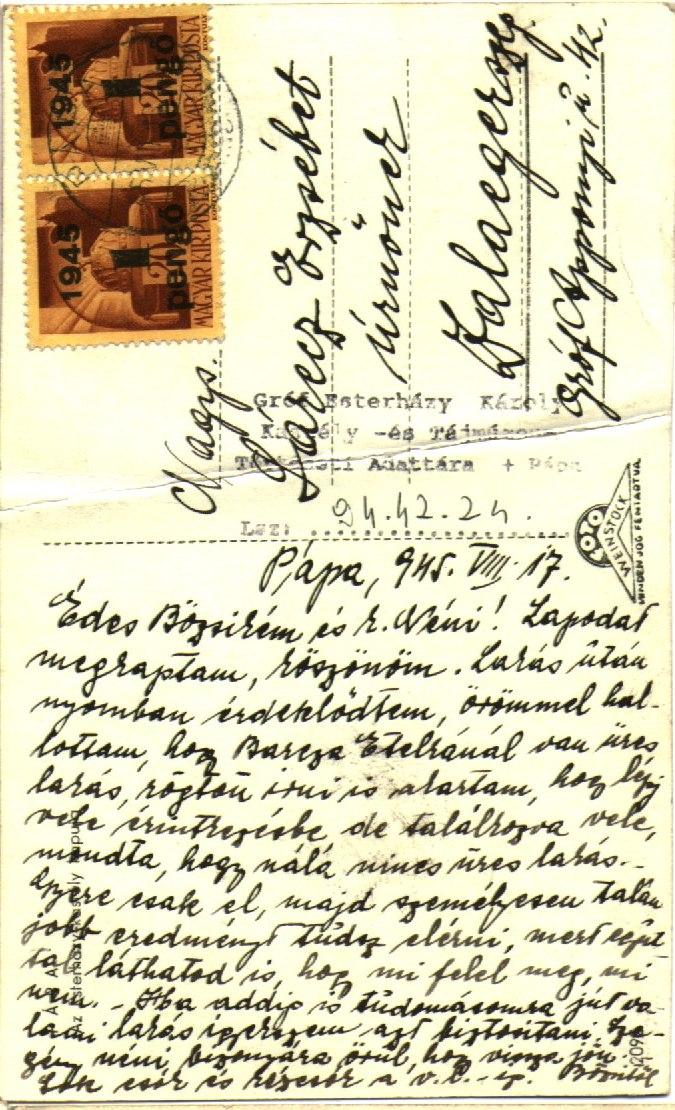 1945
1
pengő
20
MAGYAR KIR. POSTA
1945
1
pengő
20
MAGYAR KIR. POSTA
Nagys.
Erzsébet
úrnőnek
Zalaegerszeg
Gróf Apponyi u. 42.
Gróf Esterházy Károly
Kastély -és Tájmúzeum
Történeti Adattára + Pápa
Lsz: 94.42.24.
WEINSTOCK
MINDEN JOG FENNTARTVA
Pápa, 945. VIII. 17.
Édes Bözsikém és k. Néni! Lapodat
megkaptam, köszönöm. Lakás után
nyomban érdeklődtem, örömmel hal-
lottam, hog Barcza Etelkánál van üres
lakás, rögtön írni is akartam, hog légy
vele érintkezésbe, de találkozva vele,
mondta, hogy nálá nincs üres lakás. -
Gyere csak el, majd személyesen talán
jobb eredményt tudsz elérni, mert egyút
tal láthatod is, hog mi felel meg, mi
nem. - Ha addig is tudomásomra jut va-
lami lakás igyekszem azt biztosítani.
néni bizonyára örül hog vissza jön.
Sok csók és kézcsók a v.
209